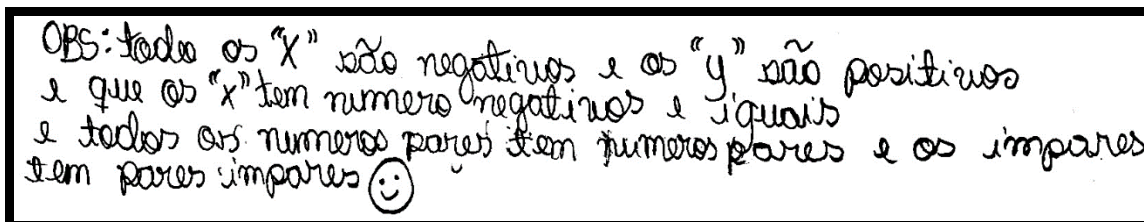 OBS: todo os "X" são negativos e os "y" são positivos
e que os "x" tem numero negativos e iguais
e todos os numeros pares tem numeros pares e os impares
tem pares impares